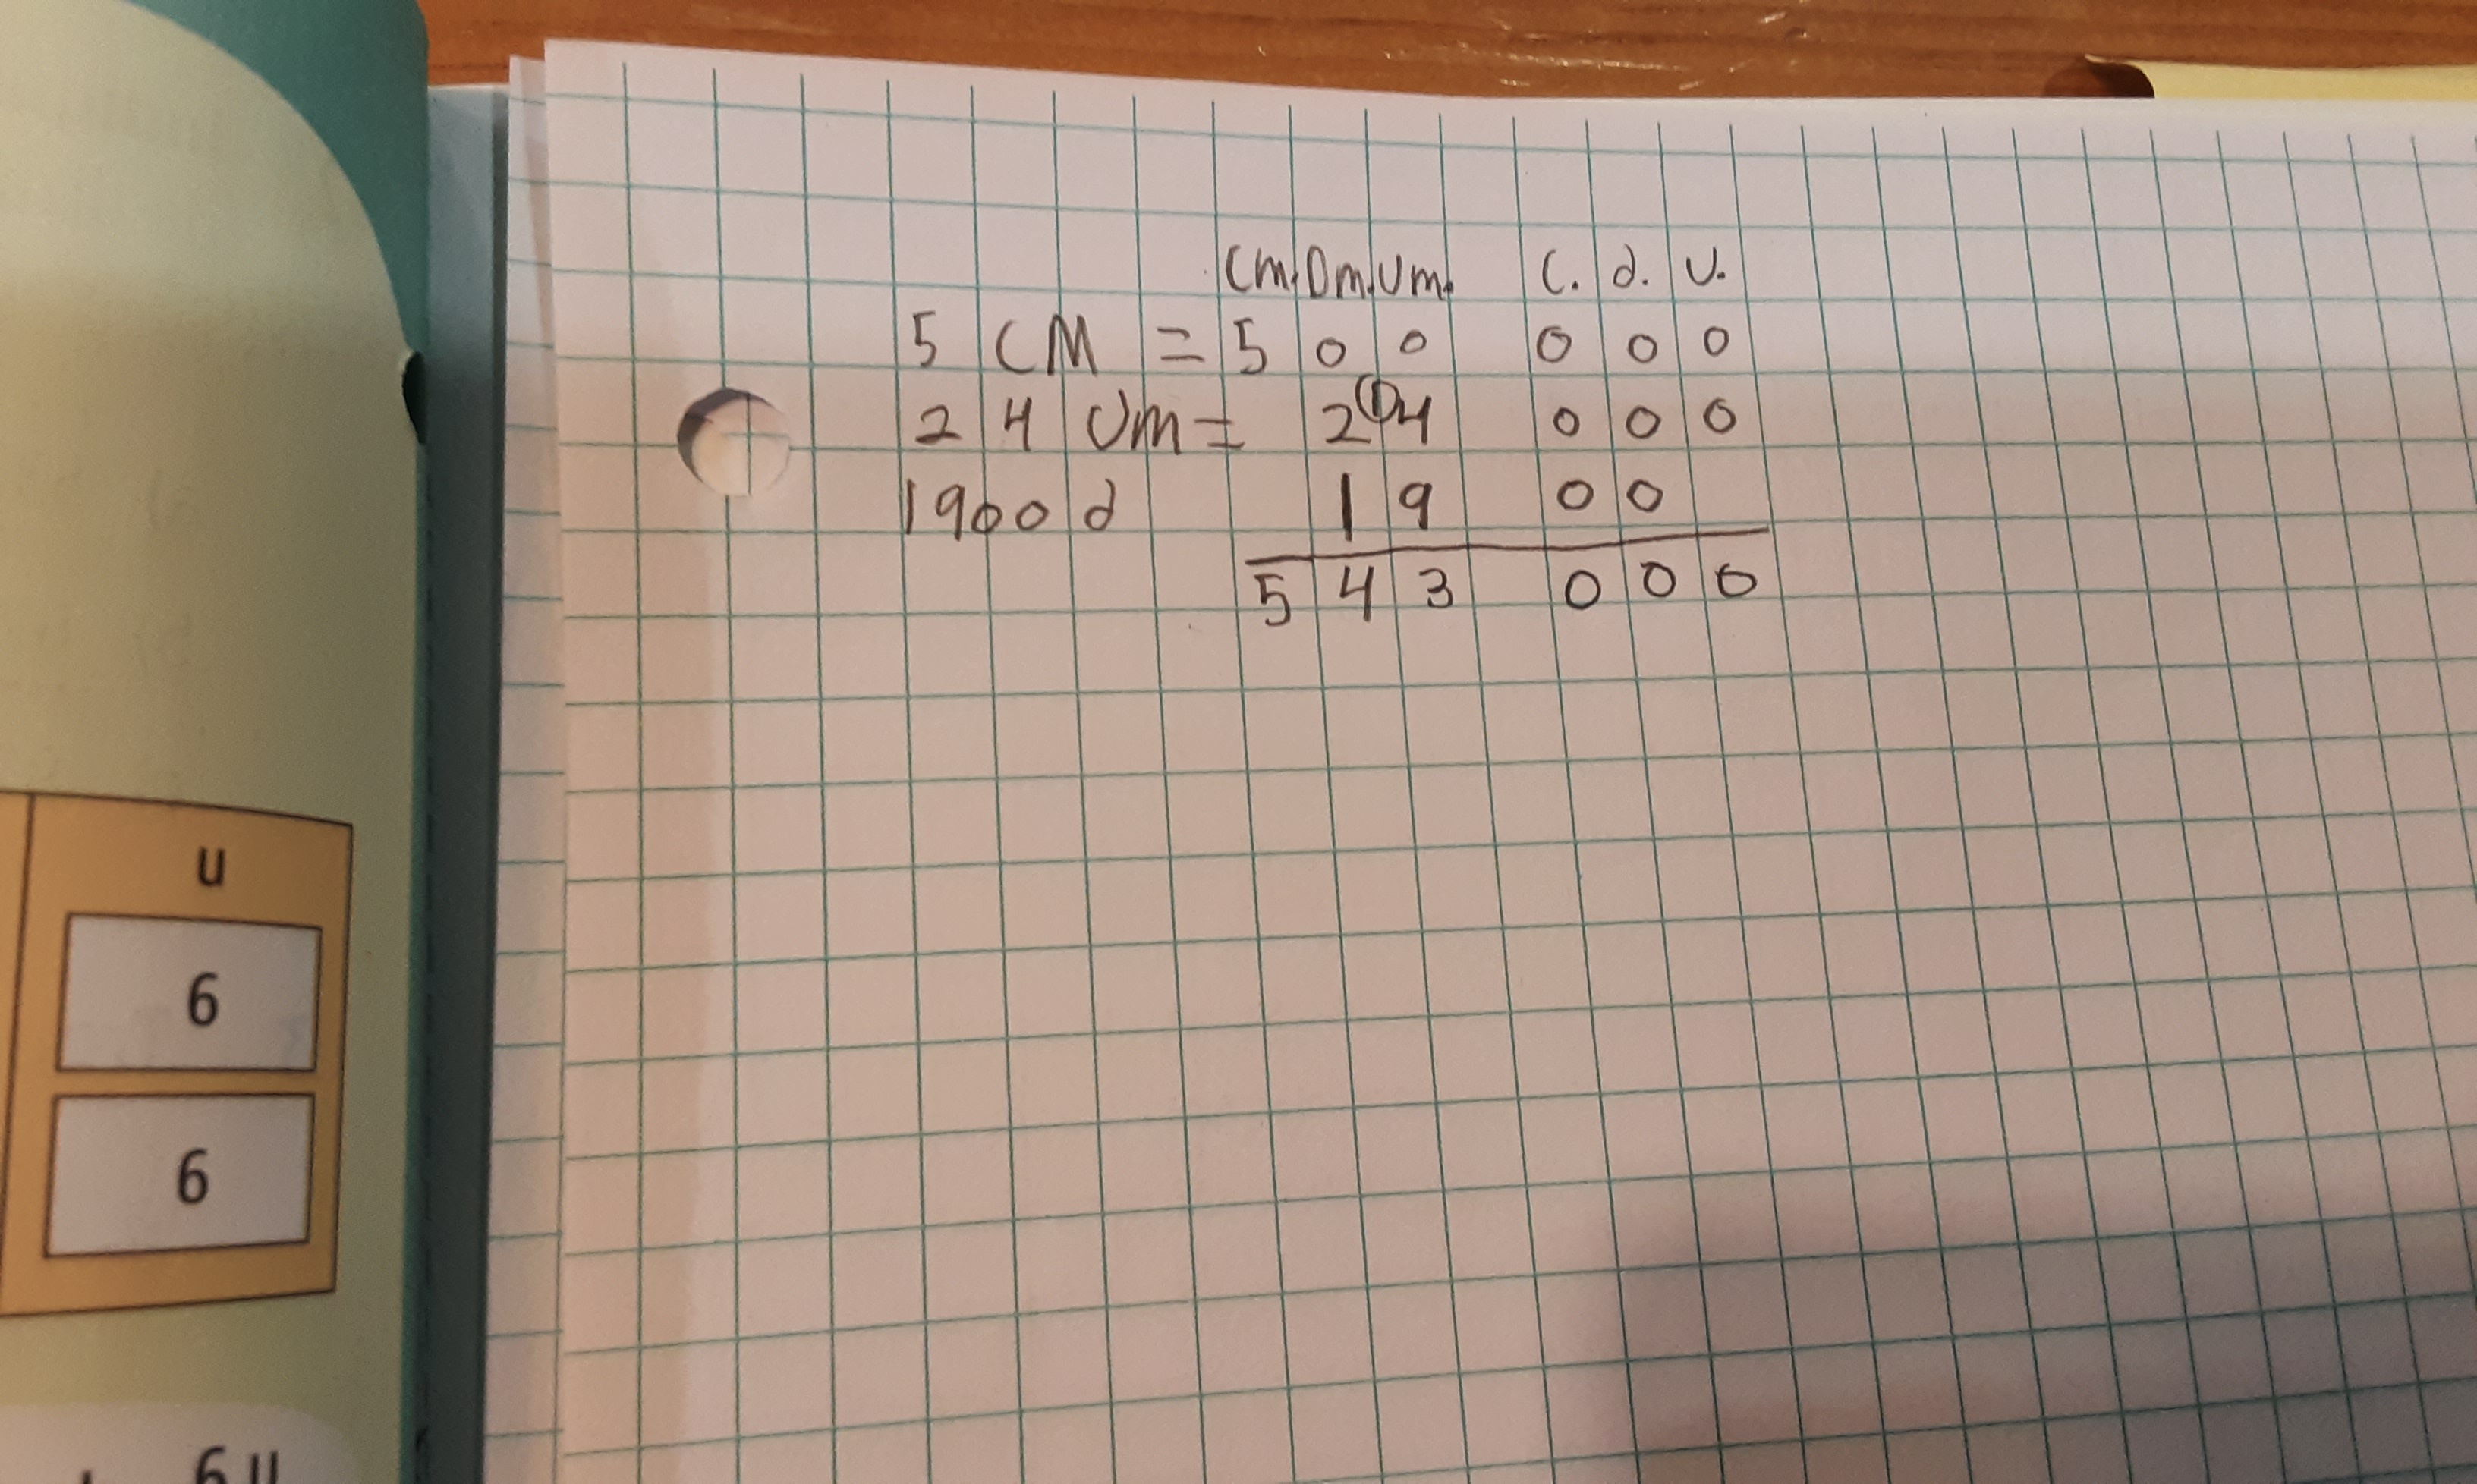 Cm. Dm. Um. C. d. U.
5 CM = 5 0 0 0 0 0
24 Um = 2 (1) 4 0 0 0
1900 d 1 9 0 0
5 4 3 0 0 0
u
6
6
6 u